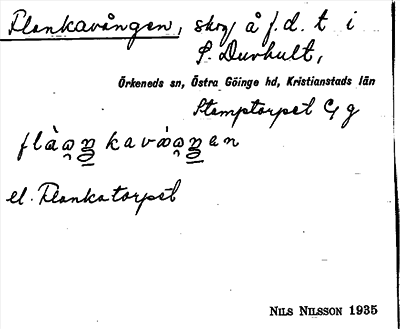 Flankavången, skog å f.d. t i
S. Duvhult,
Örkeneds sn, Östra Göinge hd, Kristianstads län
Stamptorpet C g
flàaŋkavàaŋen
el. Flankatorpet
NILS NILSSON 1935